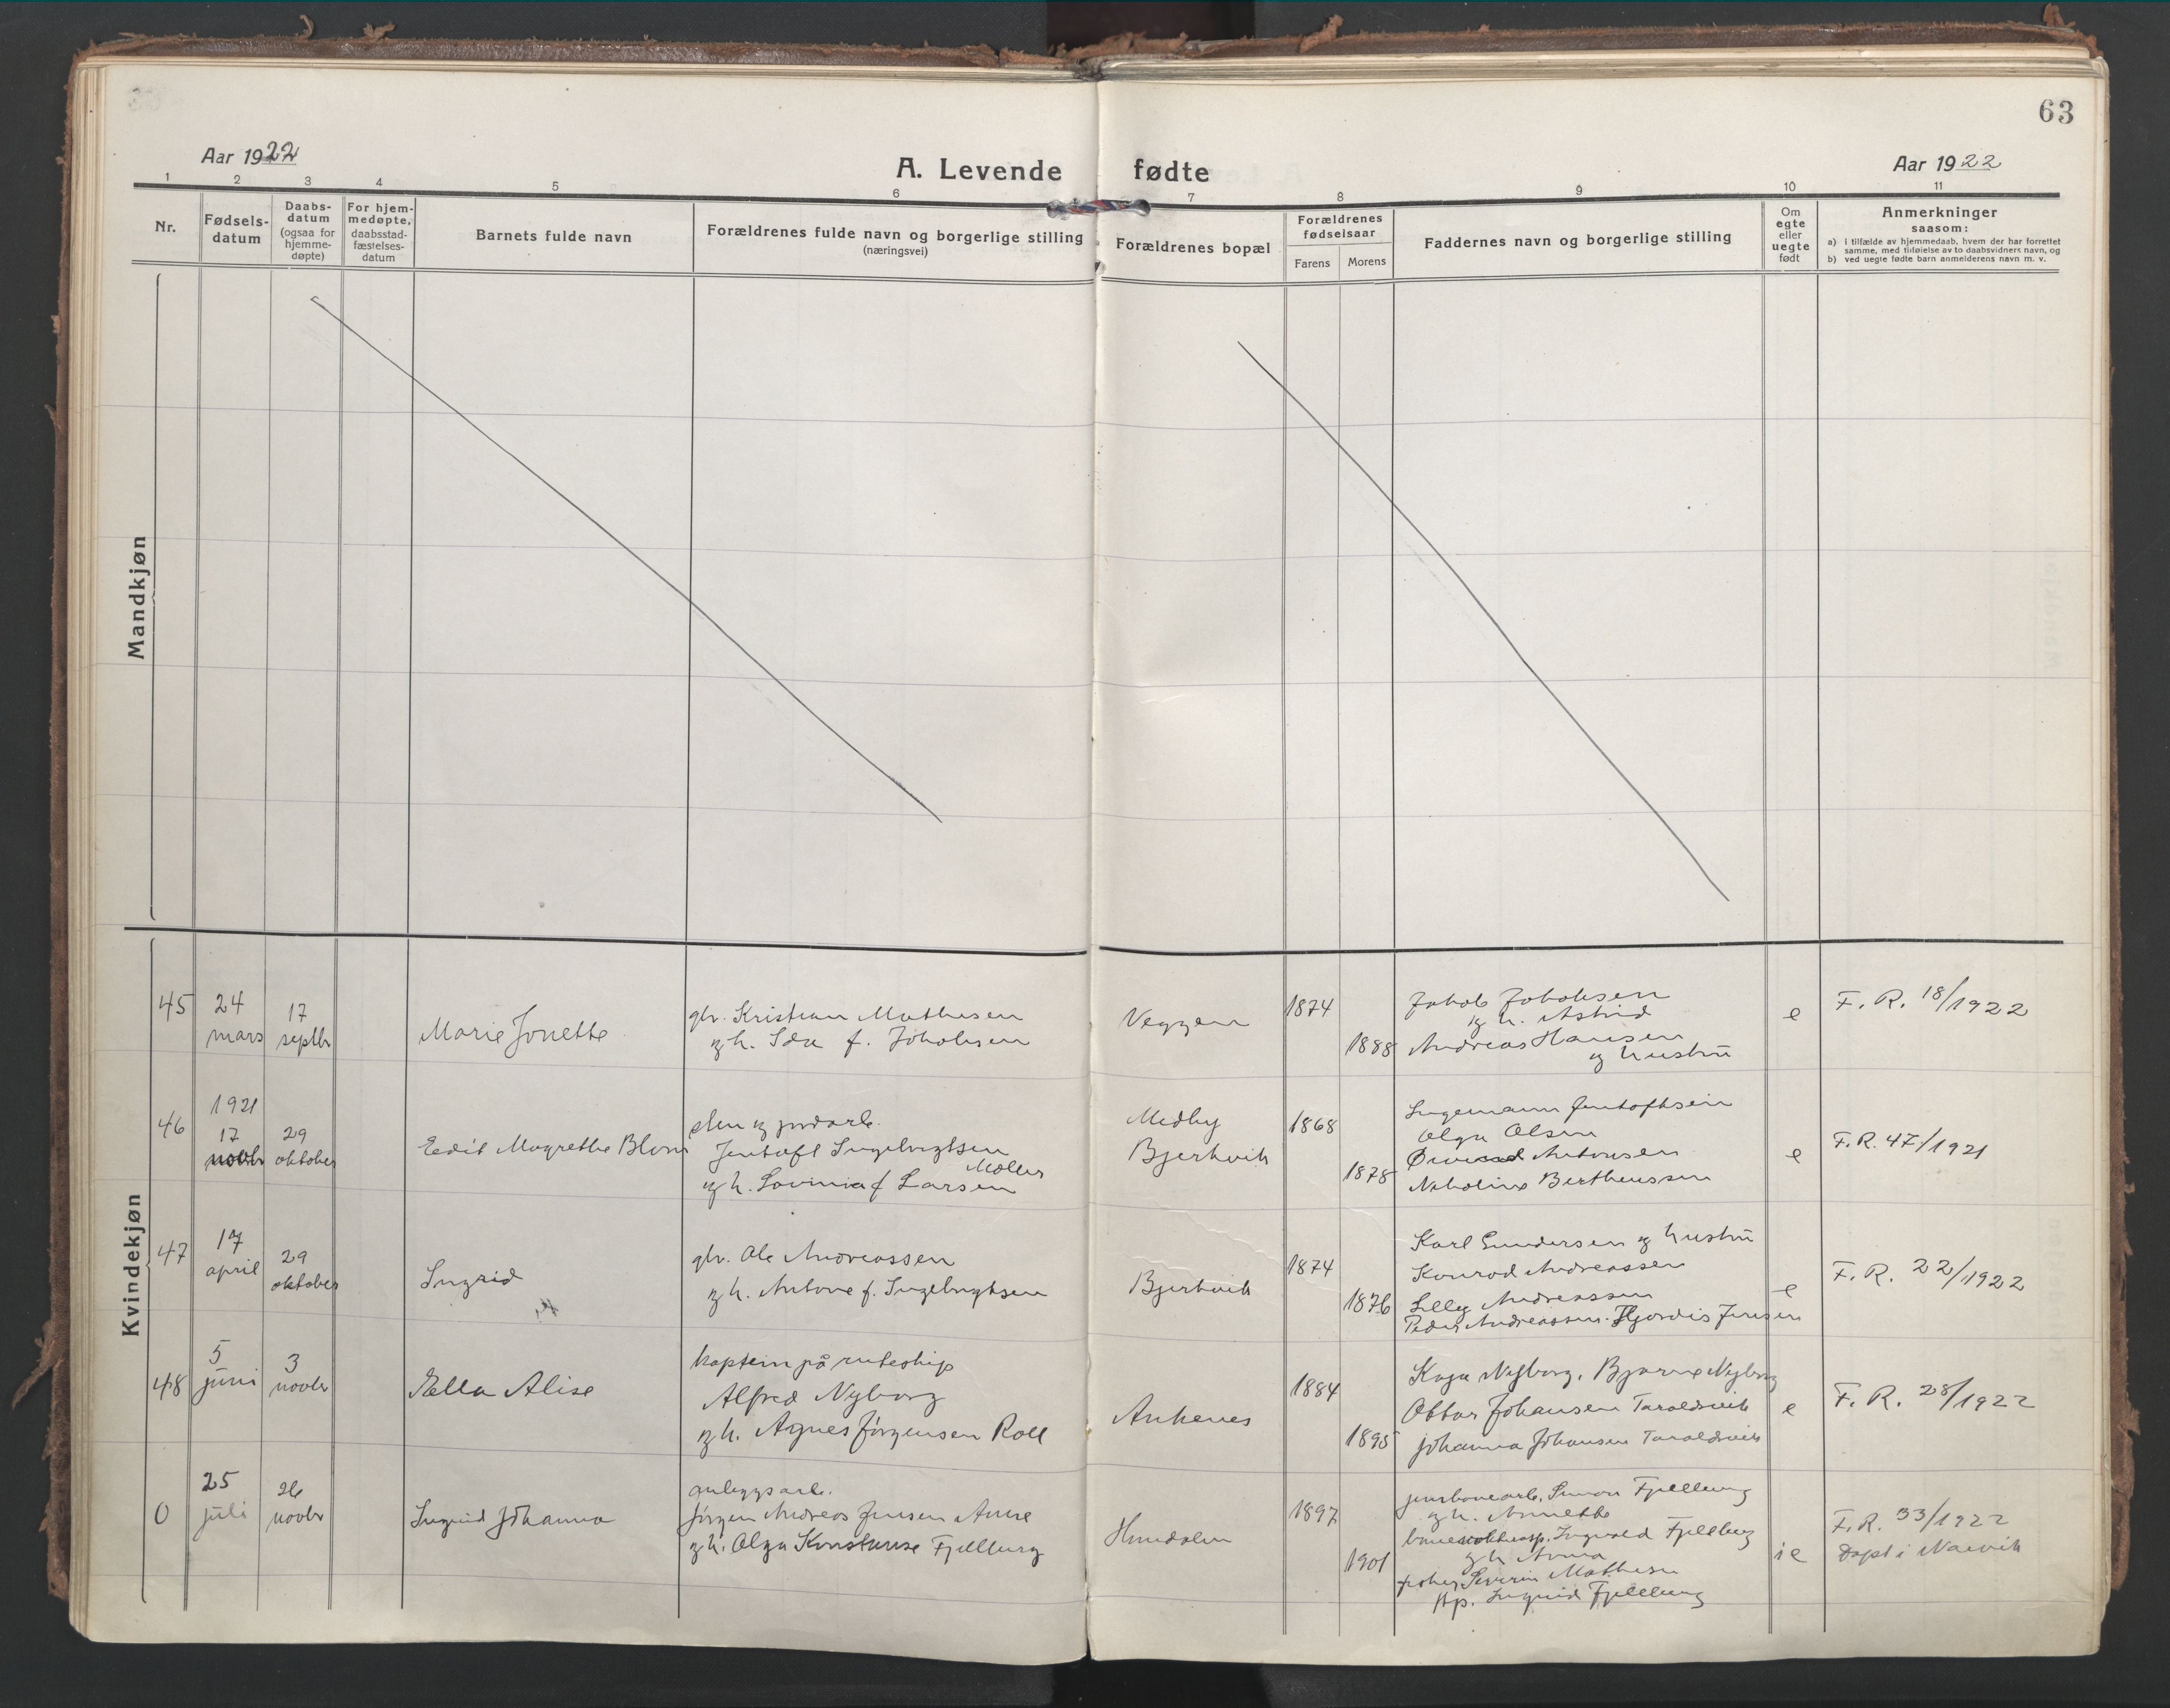 63
Aar 1922
A. Levende fødte
Aar 1922
1 2 3 4 5 6 7 8 9 10 11
Nr.
Fødsels-
datum
Daabs-
datum
(ogsaa for
hjemme-
døpte)
For hjem-
medøpte,
daabsstad-
fæstelses-
datum
Barnets fulde navn
Forældrenes fulde navn og borgerlige stilling
(næringsvei)
Forældrenes bopæl
Forældrenes
fødselsaar
Farens
Morens
Faddernes navn og borgerlige stilling
Om
egte
eller
uegte
født
Anmerkninger
saasom:
a) i tilfælde av hjemmedaab, hvem der har forrettet
samme, med tilføielse av to daabsvidners navn, og
b) ved uegte fødte barn anmelderens navn m. v.
Mandkjøn
Kvindekjøn
45
24
mars
17
septbr
Marie Jonette
gbr. Kristian Mathisen
og h. Ida f. Jakobsen
Veggen
1874
1888
Jakob Jakobsen
og h. Astrid
Andreas Hansen
og hustru
e
F. R. 18/1922
46
1921
17
novbr
29
oktober
Edit Magrethe Blom
Jentoft Ingebrigtsen
Møller
og h. Lovinia f Larsen
Medby
Bjerkvik
1868
1878
Ingemann Jentoftsen
Olga Olsen
Antonsen
Bertheussen
e
F.R. 47/1921
47
17
april
29
oktober
Ingrid
gbr. Ole Andreassen
og h. Antone f. Ingebrigtsen
Bjerkvik
1874
1876
Karl Gundersen og hustru
Konrad Andreassen
Lilly Andreassen
Peder Andreassen. Hjordis Jensen
e
F. R. 22/1922
48
5
juni
3
novbr
Ella Alise
kaptein på ruteskip
Alfred Nyborg
og h. Agnes Jørgensen Roll
Ankenes
1884
1895
Kaja Nyborg, Bjarne Nyborg
Ottar Johansen Taraldsvik
Johanna Johansen Taraldsvik
e
F. R. 28/1922
0
25
juli
26
novbr
Ingrid Johanna
anleggsarb.
Jørgen Andreas Jensen Aune
og h. Olga Konstanse Fjellborg
Hundalen
1897
1901
jernbanearb. Simon Fjellborg
og h. Annette
Ingvald Fjellborg
og h Anna
fisker Severin Mathisen
Ingrid Fjellborg
ie
F.R. 33/1922
Døpt i Narvik